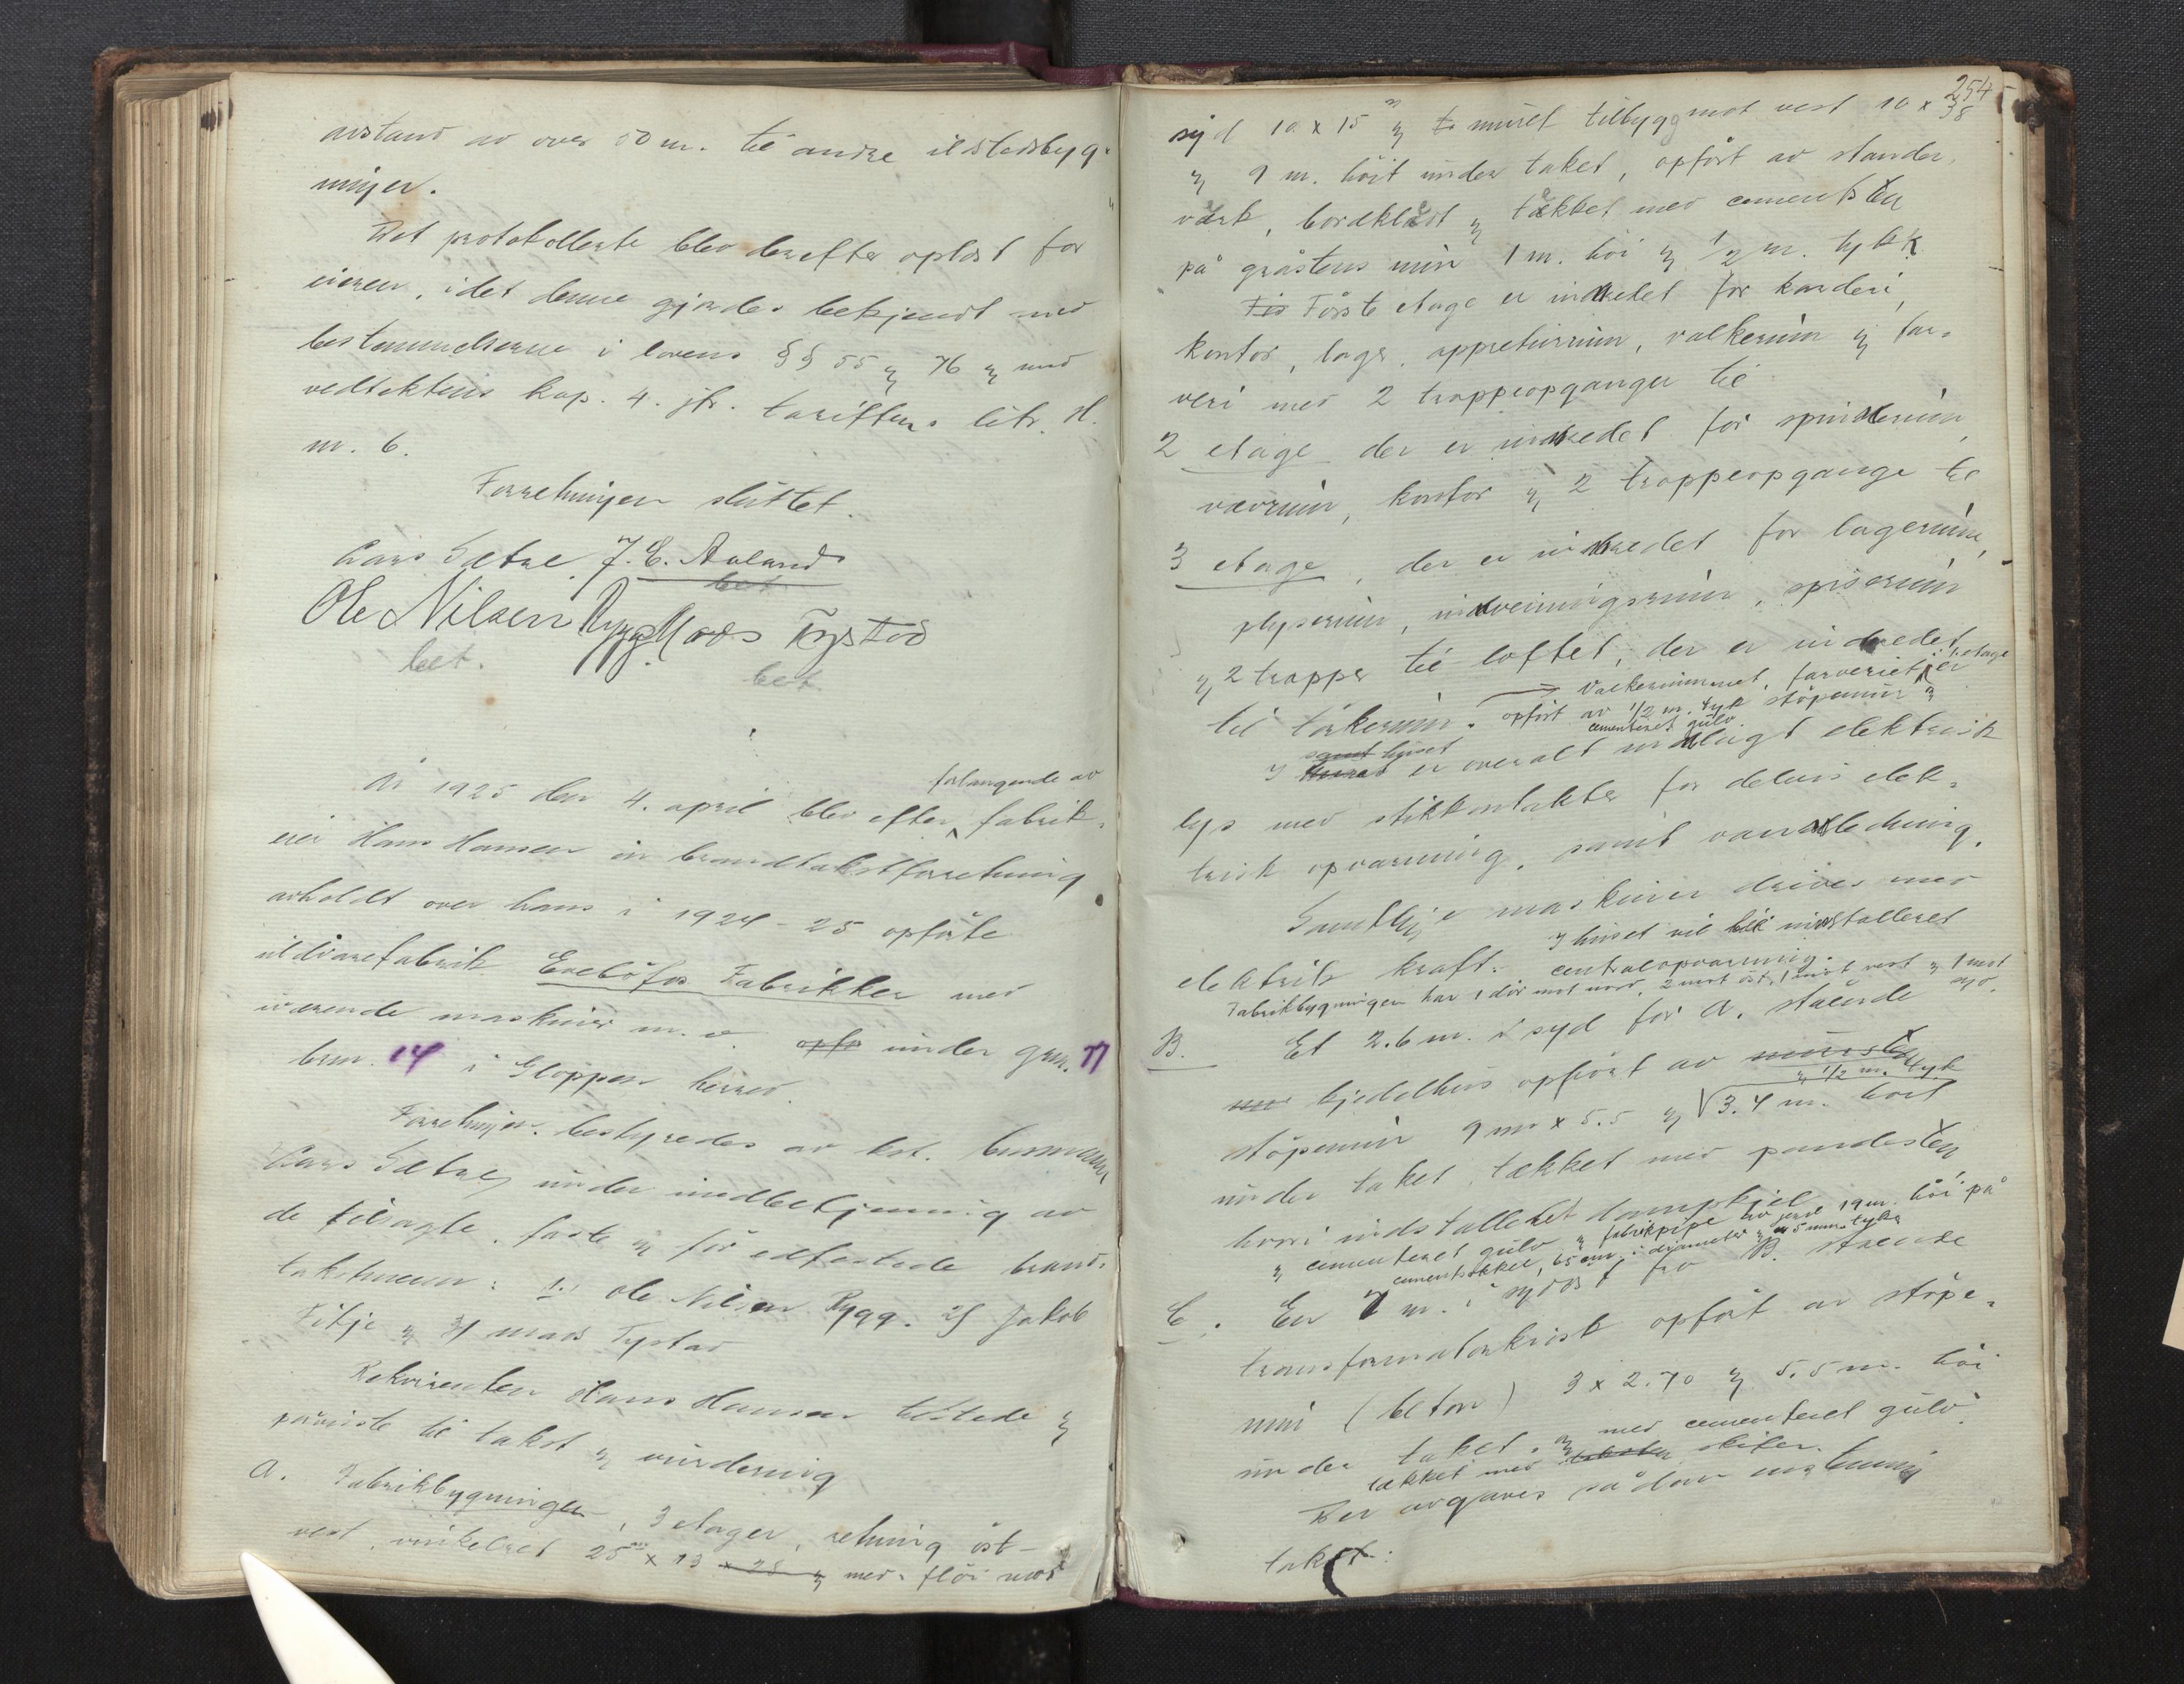 avstand av over 50 m. til andre ildstedsbyg-
ninger.
Det protokollerte blev derefter oplæst for
eieren, idet denne gjordes bekjendt med
bestemmelserne i lovens §§ 55 og 76 og med
vedtektens kap. 4. jfr. tariffens litr. H.
nr. 6.
Forretningen sluttet.
Lars Sætre J. E. Aaland
bet
Ole Nilsen Rygg Mads Tystad
bet. bet
År 1925 den 4. april blev efter forlangende av fabrik-
eier Hans Hansen en brandtakstforretning
avholdt over hans i 1924-25 opførte
uldvarefabrik Evebøfos Fabrikker med
iværende maskiner m. v. opfø under grn. 77
brn. 14 i Gloppen herred.
Forretningen bestyredes av kst. lensmann
Lars Sætre under medbetjening av
de tilsagte, faste og før edfæstede brand-
takstmenn: 1) Ole Nilsen Rygg. 2) Jakob
Fitje og 3) Mads Tystad
Rekvirenten Hans Hansen tilstede og
påviste til takst og vurdering
A. Fabrikbygningen, 3 etager, retning øst-
vest, vinkelret 25 m x 13 x 28 og med fløi mot
254
syd 10 x 15 m og to muret tilbygg mot vest 10 x 38
og 9 m. høit under taket, opført av stander-
værk, bordklædt og tækket med cementsten
på gråstens mur 1 m. høi og 1/2 m. tykk
Fis Første etage er indredet for karderi,
kontor, lager, appreturrum, valkerum og far-
veri med 2 trappeopganger til
2 etage der er indredet for spinderum,
vævrum, kontor og 2 trappeopgange til
3 etage, der er indredet for lagerrum,
plyserum, indveiningsrum, spiserum
og 2 trapper til loftet, der er indredet
til tørkerum. Valkerummet, farveriet i 1. etage er
opført av 1/2 m. tyk støpemur og
cementeret gulv.
I samt huset er overalt indlagt elektrisk
lys med stikkontakter for delvis elek-
trisk opvarmning, samt vandledning.
Samtlige maskiner drives med
elektrisk kraft. I huset vil bli installeret
centralopvarming.
Fabrikbygningen har 1 dør mot nord, 2 mot øst, 1 mot vest og 1 mot
syd.
B. Et 2.6 m. i syd for A. stående
kjedelhus opført av mursten
støpemur 9 m x 5.5 og 3.4 m. høit
og 1/2 m. tyk
under taket, tækket med pandesten
hvori indstalleret dampkjel
og cementeret gulv og fabrikpipe av jern 19 m. høi på
cementsokkel, 65 cm. i diameter og 5 mm. tyk
C. En 1 m. i sydøst fra B. stående
transformatorkiosk opført av støpe-
mur (beton) 3 x 2.70 og 5.5 m. høi
under taket, og med cementeret gulv.
tækket med taksten skifer.
Der avgaves sådan enstemmig
takst: